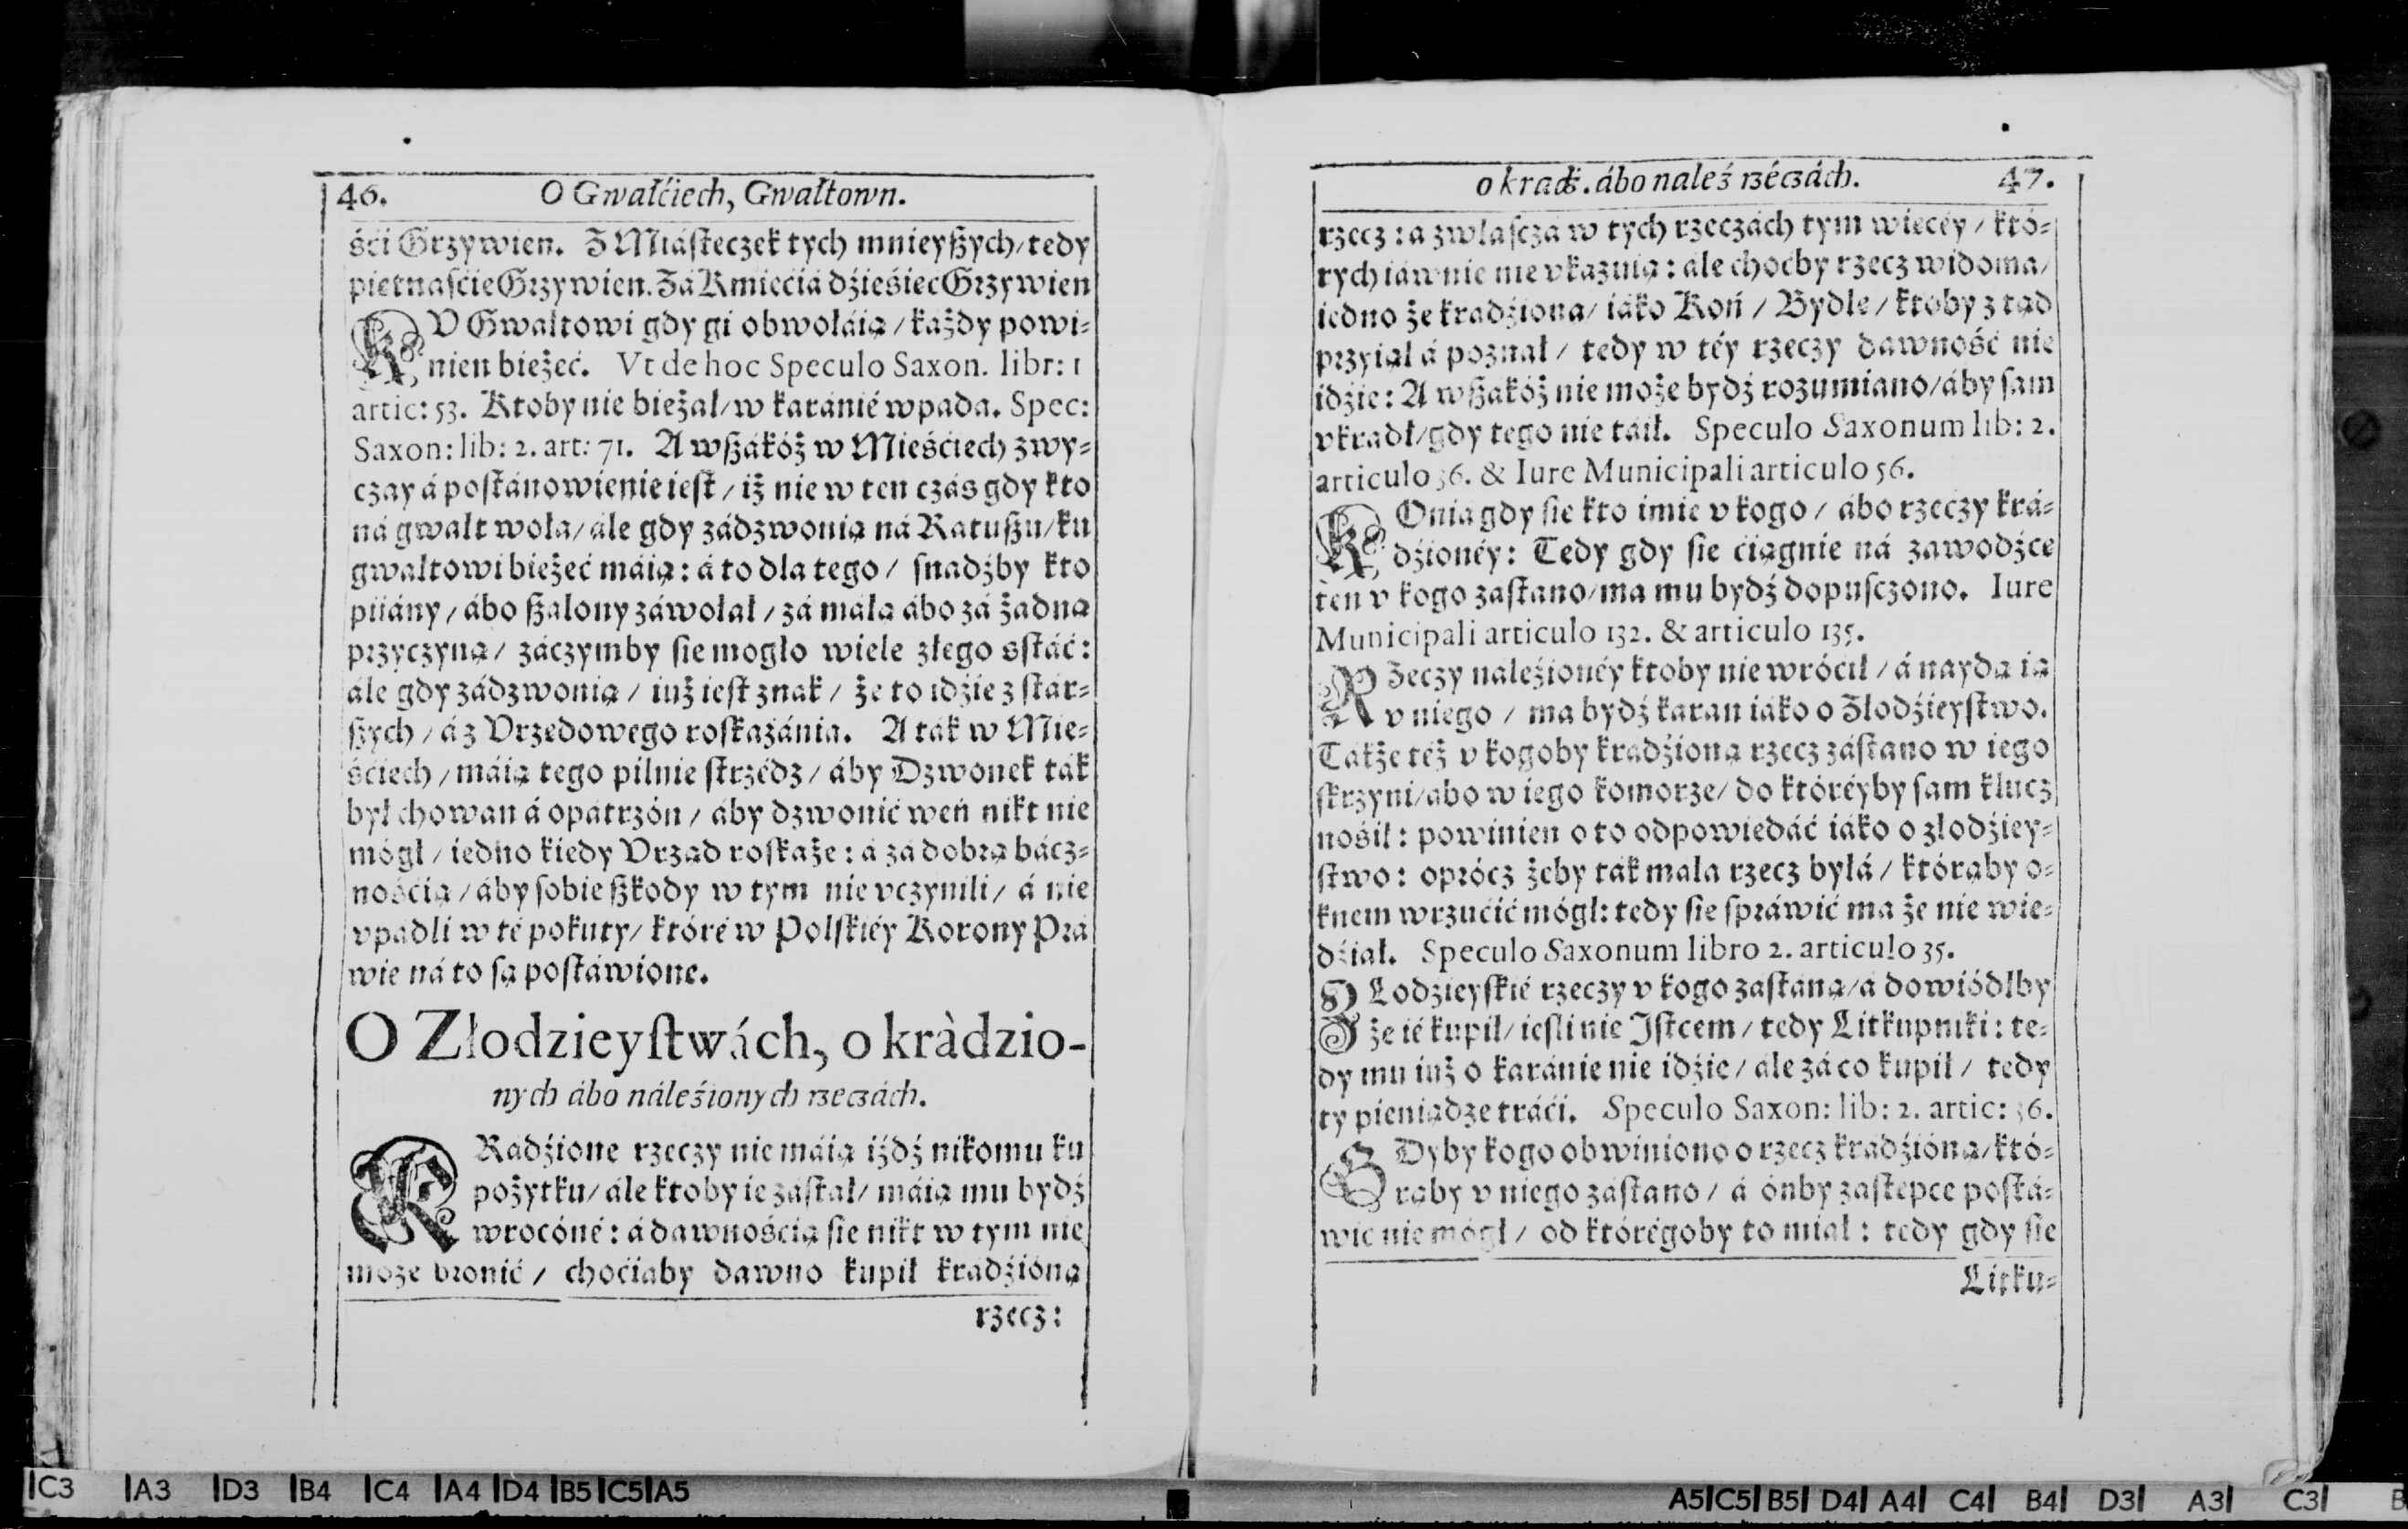 46. O Gwałćiech, Gwałtown.
śći Grzywien. Z Miásteczek tych mnieyßych/ tedy
piętnaśćie Grzywien. Zá Kmiećiá dźieśięć Grzywien
KV Gwałtowi gdy gi obwołáią/ káżdy powi-
nien bieżeć. Vt de hoc Speculo Saxon. libr: 1
artic: 53. Ktoby nie bieżał/ w karánié wpada. Spec:
Saxon: lib: 2. art: 71. A wßákóż w Mieśćiech zwy-
czay á postánowienie iest/ iż nie w ten czás gdy kto
ná gwałt woła/ ále gdy zádzwonią ná Ratußu/ ku
gwałtowi bieżeć máią: á to dla tego/ snadźby kto
piiány/ ábo ßalony záwołał/ zá małą ábo zá żadną
przyczyną/ záczymby sie mogło wiele złego sstáć:
ále gdy zádzwonią/ iuż iest znak/ że to idźie z stár-
ßych/ á z Vrzędowego roskazánia. A ták w Mie-
śćiech/ máią tego pilnie strzédz/ áby Dzwonek ták
był chowan á opátrzón/ áby dzwonić weń nikt nie
mógł/ iedno kiedy Vrząd roskaże: á zá dobrą bácz-
nośćią/ áby sobie ßkody w tym nie vczynili/ á nie
vpadli w té pokuty/ któré w Polskiéy Korony Prá
wie ná to są postáwione.
O Złodzieystwách, o kràdzio-
nych ábo náleźionych rzeczách.
KRádźione rzeczy nie máią iźdź nikomu ku
pożytku/ ále ktoby ie zástał/ máią mu bydź
wrocóné: á dawnośćią sie nikt w tym nie
może bronić/ choćiaby dawno kupił kradźióną
rzecz:
o kradź. ábo naleź rzéczách. 47.
rzecz: a zwłasczá w tych rzeczách tym wiecéy/ któ-
rych iáwnie nie vkazuią: ále choćby rzecz widoma/
iedno że kradźiona/ iáko Koń/ Bydłe/ ktoby z tąd
przyiął á poznał/ tedy w téy rzeczy dawność nie
idźie: A wßakóż nie może bydź rozumiano/ áby sam
vkradł/ gdy tego nie táił. Speculo Saxonum lib: 2.
articulo 36. & Iure Municipali articulo 56.
KOniá gdy sie kto imie v kogo/ ábo rzeczy krá-
dźionéy: Tedy gdy sie ćiągnie ná zawodźce
ten v kogo zastano/ ma mu bydź dopusczono. Iure
Municipali articulo 132. & articulo 135.
RZeczy naleźionéy ktoby nie wróćił/ á naydą ią
v niego/ ma bydź karan iáko o Złodźieystwo.
Tákże téż v kogoby kradźioną rzecz zástano w iego
skrzyni/ ábo w iego komorze/ do któréyby sam klucz
nośił: powinien o to odpowiedáć iáko o złodźiey-
stwo: oprócz żeby ták mała rzecz byłá/ którąby o-
knem wrzućić mógł: tedy sie spráwić ma że nie wie-
dźiał. Speculo Saxonum libro 2. articulo 35.
ZLodzieyskié rzeczy v kogo zastáną/ a dowiódłby
że ié kupił/ iesli nie Istcem/ tedy Litkupniki: te-
dy mu iuż o karánie nie idźie/ ále zá co kupił/ tedy
ty pieniądze tráći. Speculo Saxon: lib: 2. artic: 36.
GDyby kogo obwiniono o rzecz kradźióną/ któ-
rąby v niego zástano/ á ónby zastępce postá-
wić nie mógł/ od którégoby to miał: tedy gdy sie
Litku-
C3 A3 D3 B4 C4 A4 D4 B5 C5 A5
A5 C5 B5 D4 A4 C4 B4 D3 A3 C3 B